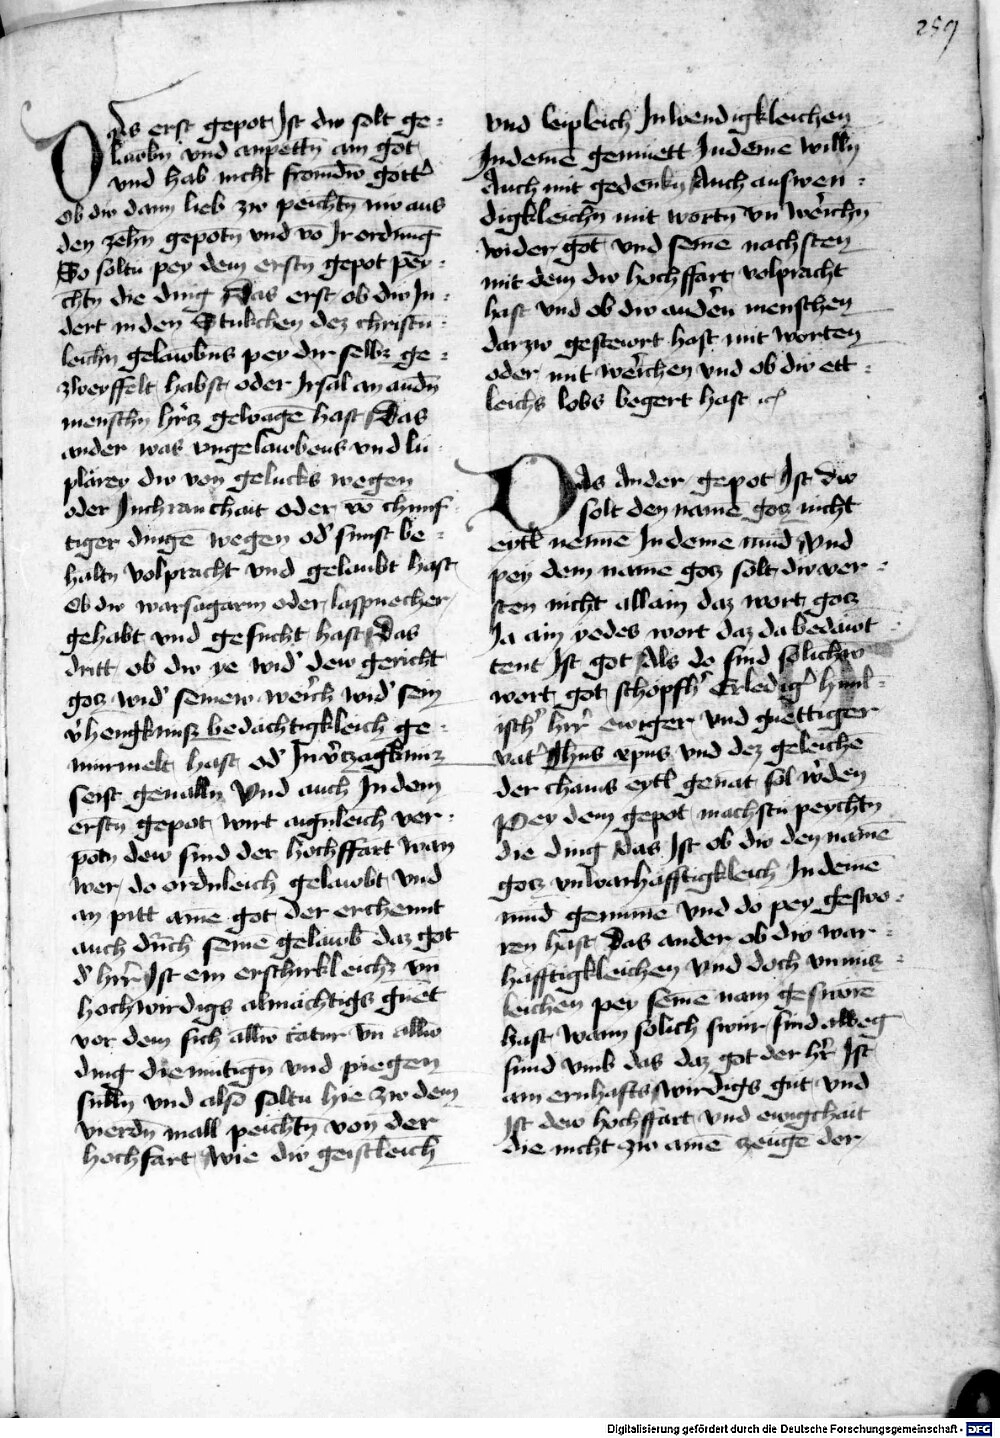 259
Das erst gepot Ist diw solt ge=
lawbn̄ vnd anpettn̄ ain got
vnd hab nicht fromd̄w gott᷑
Ob diw dann lieb zw peichtn̄ nw aus
den zehn̄ gepotn̄ vnd vō Ir ordnūg
So soltu pey dem erstn̄ gepot pey=
chtn̄ die ding Das erst ob diw In=
dert in den Stukchen dez christn̄=
leichn̄ gelawbn̄s pey dir selbs ge=
zweyffelt habst oder Irsal an andn̄
menschn̄ hercz gewage hast Das
ander was vngelawbens vnd lu
plärey diw von gelucks wegen
oder Inchranchait oder vō chunf
tiger dingē wegen od᷑ sunst be=
haltn̄ volpracht vnd gelaubt hast
Ob diw warsagarin oder laspnecher
gehabt vnd gesucht hast Das
dritt ob diw ye wid᷑ dew gericht
gocz wid᷑ seinew werich wid᷑ sein
v᷑hengknusz bedachtigkleich ge=
murmelt hast od᷑ In v᷑czagknusz
seist geualln̄ Vnd auch In dem
erstn̄ gepot wirt aignleich ver=
potn̄ dew sind der hochffart wan
wer do ordnleich gelawbt vnd
an pitt aine got der erchennt
auch durch seinē gelawb daz got
d᷑ herr Ist ein erschrikleichz vn̄
hochwirdigs almachtigs guet
vor dem sich allew catur vn̄ allew
ding diemutign̄ vnd piegen
sulln̄ vnd alsō soltu hie zw dem
vierdn̄ mall peichtn̄ von der
hochfart Wie diw geistleich
vnd leipleich Inwendigkleichen
In deinē gemuett In deinē willn̄
Auch mit gedenkn̄ Auch auswen=
digkleichn̄ mit wortn̄ vn̄ werichn̄
wider got vnd seinē nachsten
mit dem diw hochffart volpracht
hast vnd ob diw anderū menschen
darzw gestewrt hast mit worten
oder mit werichen vnd ob diw ett=
leichs lobs begert hast ⁊c
Das Ander gepot Ist diw
solt den namē gocz nicht
eytl nennē In deine mūd Vnd
pey dem name gocz solt diw ver=
sten nicht allain daz wort gocz
Ja ain yedes wort daz da bedawt=
tent Ist got Als do sind solichew
wort got schopffer Erledig᷑ himl=
isch᷑ herr ewiger vnd guettiger
vat᷑ Ihūs xpūs vnd dez geleichē
der chains eytl genāt sol w᷑den
Pey dem gepot machstu peychtn̄
die ding Das Ist ob diw den namē
gocz vnwarhafftigkleich In deinē
mūd genumē vnd do pey geswo=
ren hast Das ander ob diw war=
hafftigkleichen vnd doch vnnucz=
leichen pey seinē nam geswōrē
hast wann solich swūr sind albeg
sund vmb das daz got der herr Ist
am ernhafts wirdigs gut vnd
Ist dew hochffart vnd ewigchait
die nicht zw ainē zeuge der
Digitalisierung gefördert durch die Deutsche Forschungsgemeinschaft - DFG